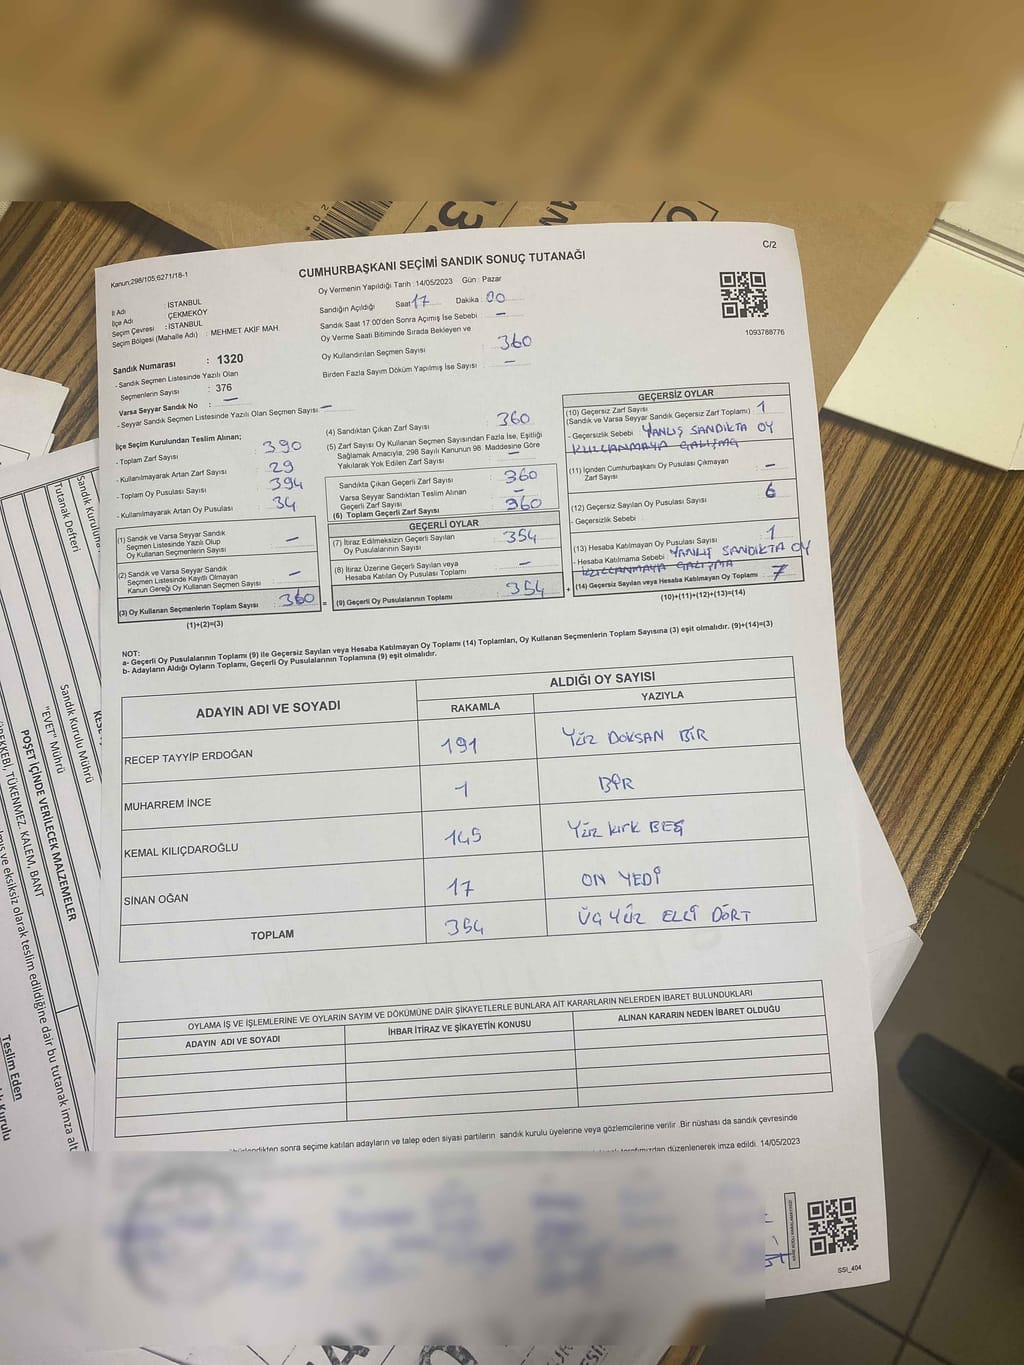 C/2
Kanun;298/105;6271/18-1
CUMHURBAŞKANI SEÇİMİ SANDIK SONUÇ TUTANAĞI
İl Adı : İSTANBUL
İlçe Adı : ÇEKMEKÖY
Seçim Çevresi : İSTANBUL
Seçim Bölgesi (Mahalle Adı) : MEHMET AKİF MAH.
Sandık Numarası : 1320
- Sandık Seçmen Listesinde Yazılı Olan
Seçmenlerin Sayısı : 376
Varsa Seyyar Sandık No : —
- Seyyar Sandık Seçmen Listesinde Yazılı Olan Seçmen Sayısı : —
Oy Vermenin Yapıldığı Tarih : 14/05/2023 Gün : Pazar
Sandığın Açıldığı Saat 17 Dakika : 00
Sandık Saat 17:00'den Sonra Açımış İse Sebebi —
Oy Verme Saati Bitiminde Sırada Bekleyen ve
Oy Kullandırılan Seçmen Sayısı 360
Birden Fazla Sayım Döküm Yapılmış İse Sayısı —
1093788776
İlçe Seçim Kurulundan Teslim Alınan;
- Toplam Zarf Sayısı 390
- Kullanılmayarak Artan Zarf Sayısı 29
- Toplam Oy Pusulası Sayısı 394
- Kullanılmayarak Artan Oy Pusulası 34
(1) Sandık ve Varsa Seyyar Sandık
Seçmen Listesinde Yazılı Olup
Oy Kullanan Seçmenlerin Sayısı —
(2) Sandık ve Varsa Seyyar Sandık
Seçmen Listesinde Kayıtlı Olmayan
Kanun Gereği Oy Kullanan Seçmen Sayısı —
(3) Oy Kullanan Seçmenlerin Toplam Sayısı : 360 =
(1)+(2)=(3)
(4) Sandıktan Çıkan Zarf Sayısı 360
(5) Zarf Sayısı Oy Kullanan Seçmen Sayısından Fazla İse, Eşitliği
Sağlamak Amacıyla, 298 Sayılı Kanunun 98. Maddesine Göre
Yakılarak Yok Edilen Zarf Sayısı —
Sandıkta Çıkan Geçerli Zarf Sayısı 360
Varsa Seyyar Sandıktan Teslim Alınan
Geçerli Zarf Sayısı —
(6) Toplam Geçerli Zarf Sayısı 360
GEÇERLİ OYLAR
(7) İtiraz Edilmeksizin Geçerli Sayılan
Oy Pusulalarının Sayısı 354
(8) İtiraz Üzerine Geçerli Sayılan veya
Hesaba Katılan Oy Pusulası Toplamı —
(9) Geçerli Oy Pusulalarının Toplamı 354 +
GEÇERSİZ OYLAR
(10) Geçersiz Zarf Sayısı
(Sandık ve Varsa Seyyar Sandık Geçersiz Zarf Toplamı) 1
- Geçersizlik Sebebi YANLIŞ SANDIKTA OY
KULLANMAYA ÇALIŞMA
(11) İçinden Cumhurbaşkanı Oy Pusulası Çıkmayan
Zarf Sayısı —
(12) Geçersiz Sayılan Oy Pusulası Sayısı 6
- Geçersizlik Sebebi :
(13) Hesaba Katılmayan Oy Pusulası Sayısı 1
- Hesaba Katılmama Sebebi : YANLIŞ SANDIKTA OY
KULLANMAYA ÇALIŞMA
(14) Geçersiz Sayılan veya Hesaba Katılmayan Oy Toplamı 7
(10)+(11)+(12)+(13)=(14)
NOT:
a- Geçerli Oy Pusulalarının Toplamı (9) ile Geçersiz Sayılan veya Hesaba Katılmayan Oy Toplamı (14) Toplamları, Oy Kullanan Seçmenlerin Toplam Sayısına (3) eşit olmalıdır. (9)+(14)=(3)
b- Adayların Aldığı Oyların Toplamı, Geçerli Oy Pusulalarının Toplamına (9) eşit olmalıdır.
ADAYIN ADI VE SOYADI
ALDIĞI OY SAYISI
RAKAMLA YAZIYLA
RECEP TAYYİP ERDOĞAN 191 YÜZ DOKSAN BİR
MUHARREM İNCE 1 BİR
KEMAL KILIÇDAROĞLU 145 YÜZ KIRK BEŞ
SİNAN OĞAN 17 ON YEDİ
TOPLAM 354 ÜÇ YÜZ ELLİ DÖRT
OYLAMA İŞ VE İŞLEMLERİNE VE OYLARIN SAYIM VE DÖKÜMÜNE DAİR ŞİKAYETLERLE BUNLARA AİT KARARLARIN NELERDEN İBARET BULUNDUKLARI
ADAYIN ADI VE SOYADI İHBAR İTİRAZ VE ŞİKAYETİN KONUSU ALINAN KARARIN NEDEN İBARET OLDUĞU
sonra seçime katılan adayların ve talep eden siyasi partilerin sandık kurulu üyelerine veya gözlemcilerine verilir. Bir nüshası da sandık çevresinde
düzenlenerek imza edildi. 14/05/2023
SSI_404
Sandık Kuruluna
Tutanak Defteri
Sandık Kurulu Mührü
"EVET" Mührü
POŞET İÇİNDE VERİLECEK MALZEMELER
TÜKENMEZ KALEM, BANT
ve eksiksiz olarak teslim edildiğine dair bu tutanak imza alt
Teslim Eden
Kurulu